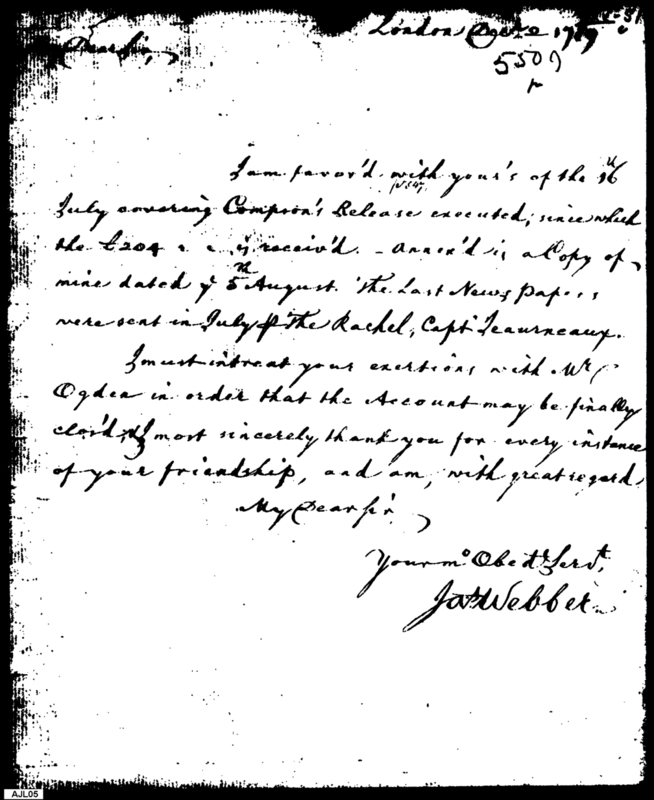 London 1787
5509
My Dear Sir,
I am favor'd with your's of the 16
July covering Compson's Release executed, since which
the £204 is receiv'd. - Annex'd is a Copy of
mine dated ye 5th August. The Last News Papers
were sent in July p The Rachel, Capt Teaurneaux.
I must intreat your exertions with Mr
Ogden in order that the Account may be finally
clos'd, & I most sincerely thank you for every instance
of your friendship, and am, with great regard
My Dear Sir
Your mo Obedt Servt,
Jas Webber
AJL05